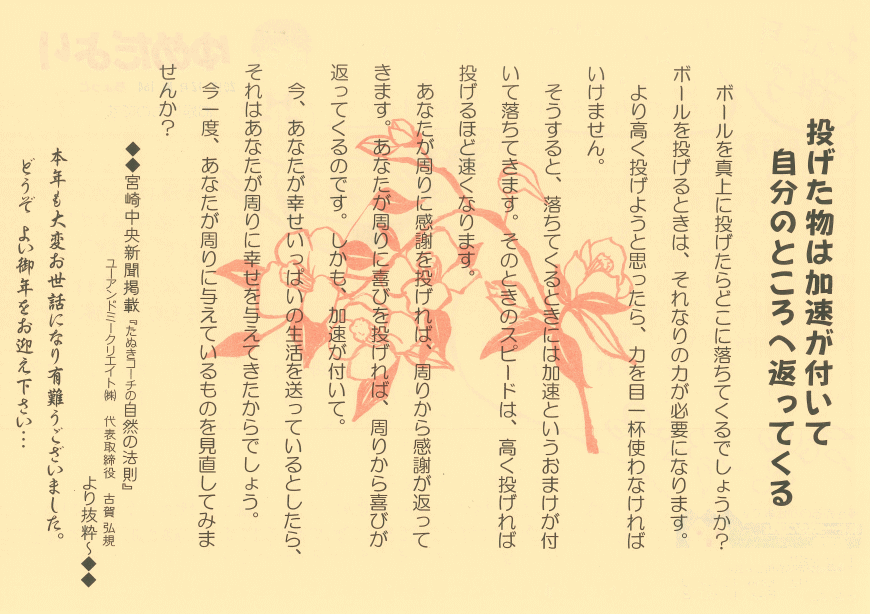 投げた物は加速が付いて
自分のところへ返ってくる
ボールを真上に投げたらどこに落ちてくるでしょうか？
ボールを投げるときは、それなりの力が必要になります。
より高く投げようと思ったら、力を目一杯使わなければ
いけません。
そうすると、落ちてくるときには加速というおまけが付
いて落ちてきます。そのときのスピードは、高く投げれば
投げるほど速くなります。
あなたが周りに感謝を投げれば、周りから感謝が返って
きます。あなたが周りに喜びを投げれば、周りから喜びが
返ってくるのです。しかも、加速が付いて。
今、あなたが幸せいっぱいの生活を送っているとしたら、
それはあなたが周りに幸せを与えてきたからでしょう。
今一度、あなたが周りに与えているものを見直してみま
せんか？
◆◆宮崎中央新聞掲載『たぬきコーチの自然の法則』
ユーアンドミークリエイト㈱ 代表取締役 古賀 弘規
より抜粋～◆◆
本年も大変お世話になり有難うございました。
どうぞ よい御年をお迎え下さい…